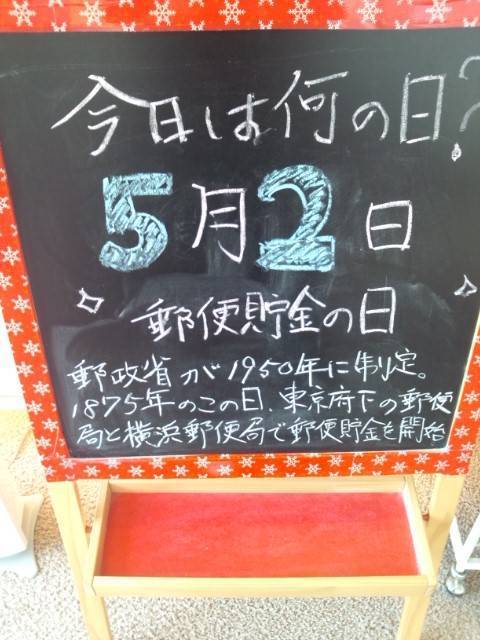 今日は何の日?
5月2日
郵便貯金の日
郵政省が1950年に制定。
1875年のこの日、東京府下の郵便
局と横浜郵便局で郵便貯金を開始